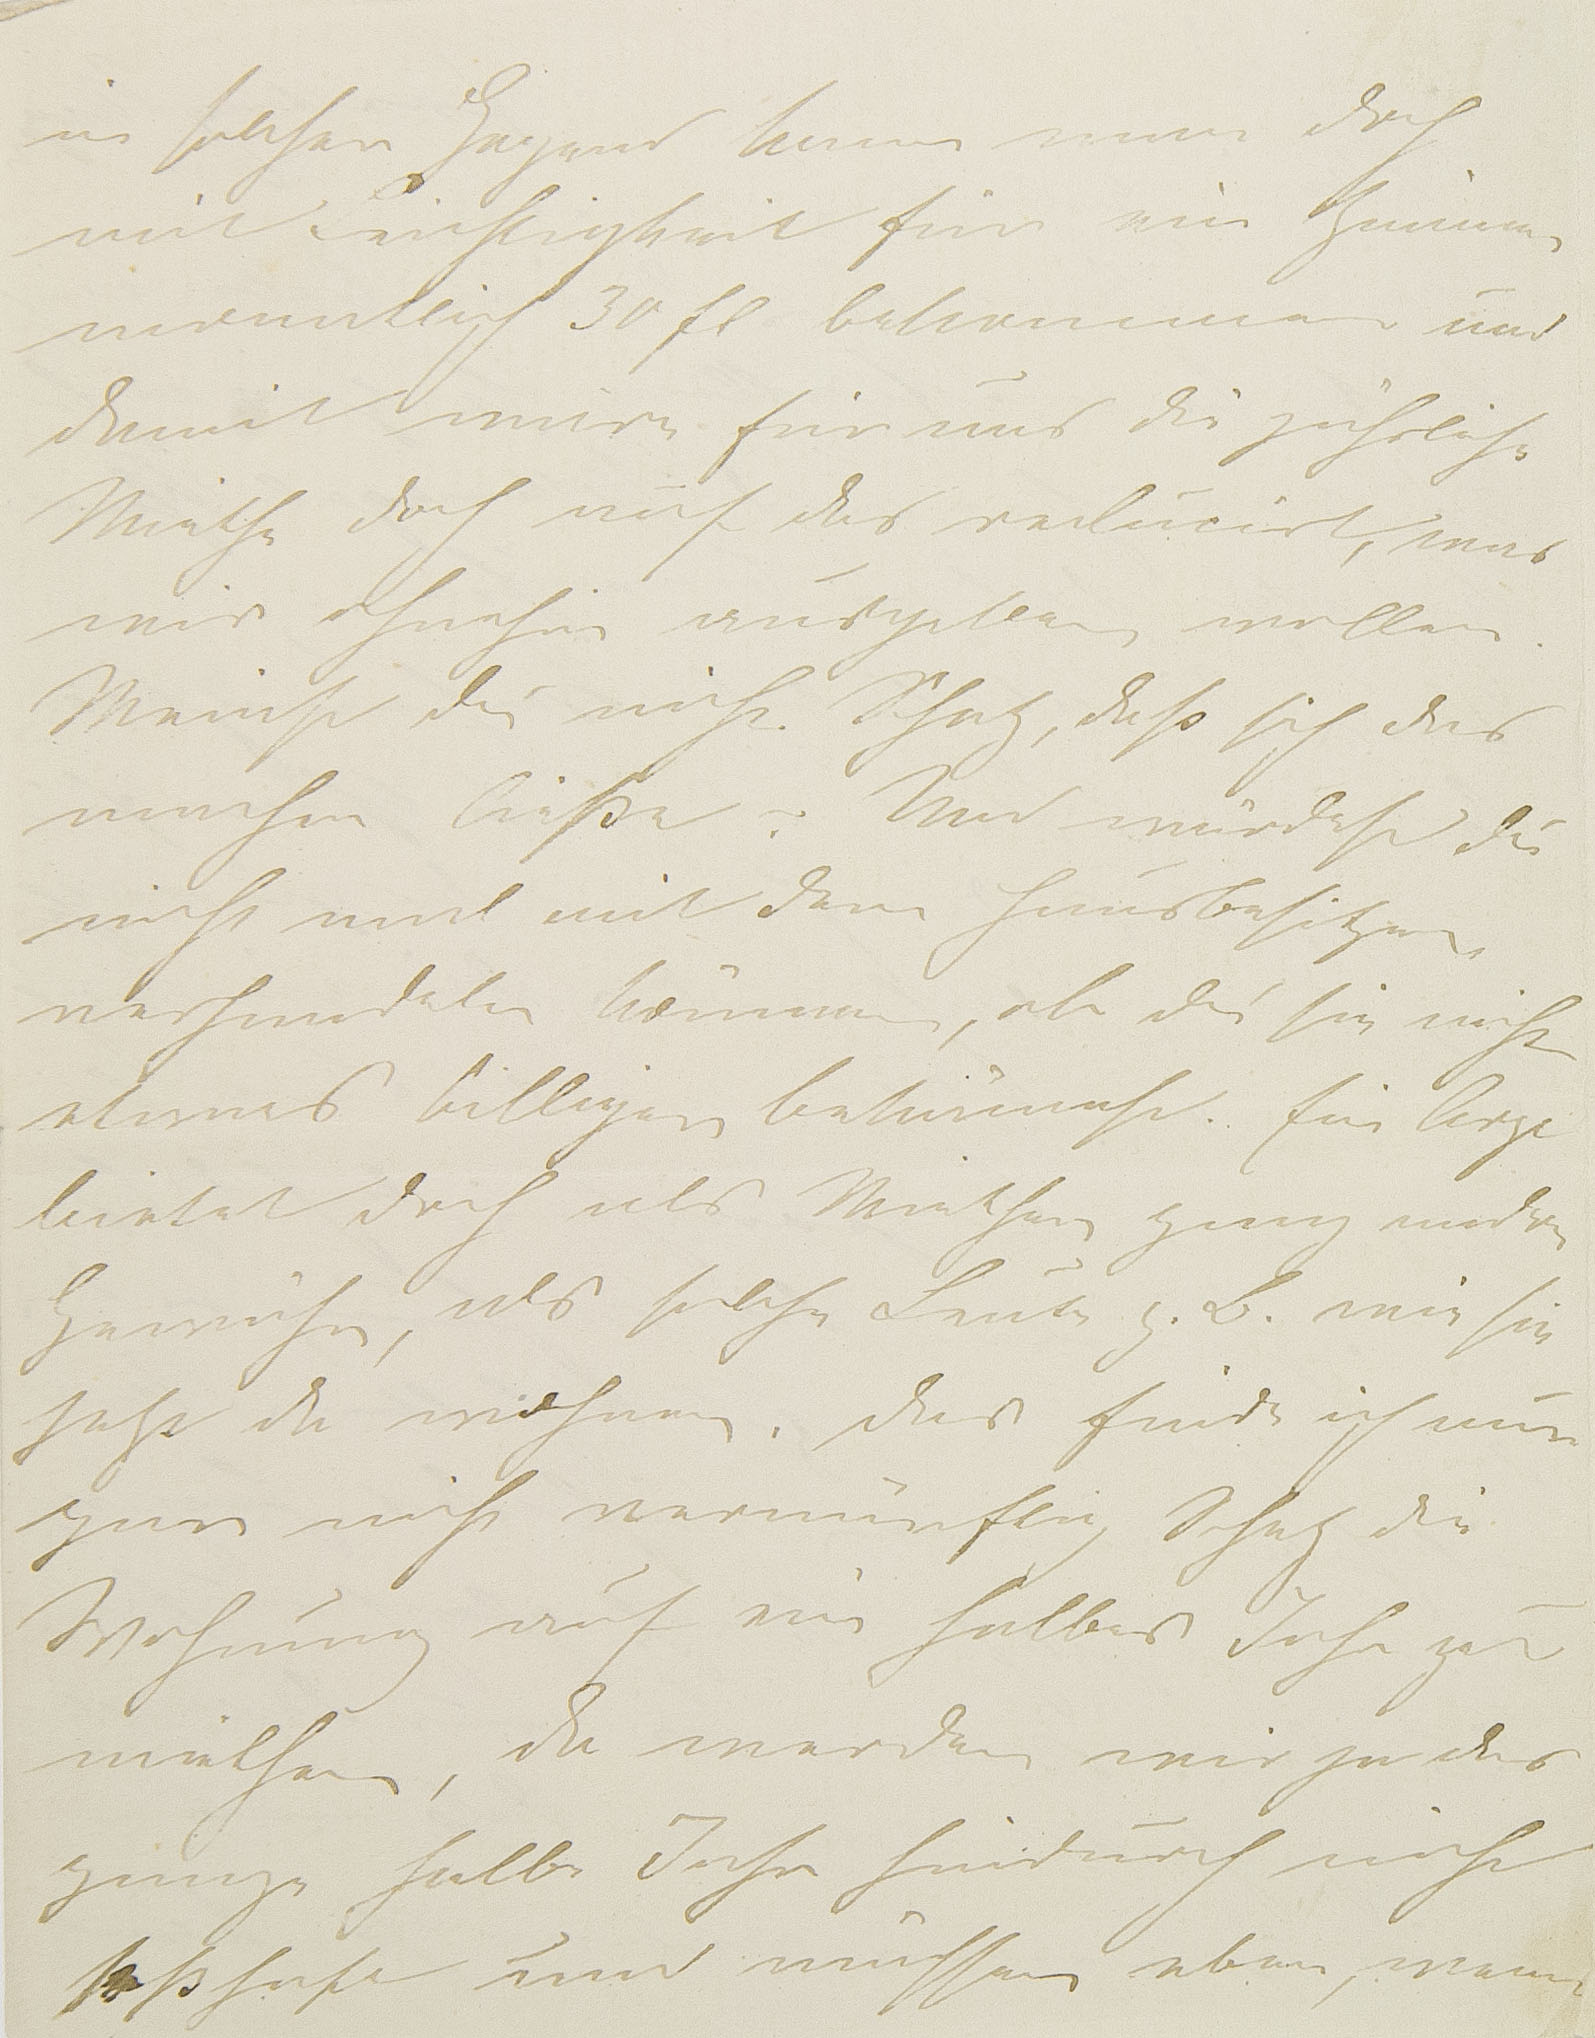 in solcher Gegend kann man doch
mit Leichtigkeit für ein Zimmer
monatlich 30 fl bekommen und
damit wäre für uns die jährliche
Miethe doch auf das reducirt, was
wir ohnehin ausgeben wollen.
Meinst du nicht Schatz, daß sich das
machen ließe? Und würdest du
nicht mal mit dem Hausbesitzer
verhandeln können, ob du sie nicht
etwas billiger bekämest. Ein Arzt
bietet doch als Miether ganz andere
Gewähr, als solche Leute z. B. wie sie
jetzt da wohnen. Das finde ich nun
gar nicht vernünftig Schatz die
Wohnung auf ein halbes Jahr zu
miethen, da werden wir ja das
ganze halbe Jahr hindurch nicht
seßhaft und müssen eben, wenn